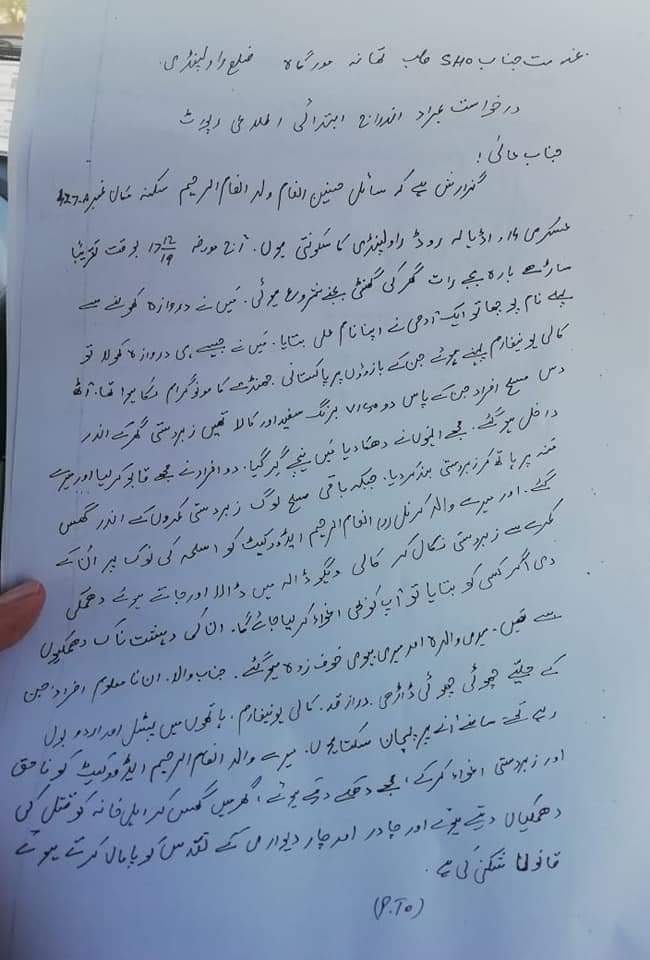 بخدمت جناب SHO صاحب تھانہ مورگاہ ضلع راولپنڈی.
درخواست بمراد اندراج ابتدائی اطلاعی رپورٹ
جناب عالی!
گذارش ہے کہ سائل حسنین انعام ولد انعام الرحیم سکنہ مکان نمبر 427.A
عسکری 14، اڈیالہ روڈ راولپنڈی کا سکونتی ہوں. آج مورخہ 17 12/19 بوقت تقریباً
ساڑھے بارہ بجے رات گھر کی گھنٹی بجنے شروع ہوئی. میں نے دروازہ کھولنے سے
پہلے نام پوچھا تو ایک آدمی نے اپنا نام علی بتایا. میں نے جیسے ہی دروازہ کھولا تو
کالی یونیفارم پہنے ہوئے جن کے بازوؤں پر پاکستانی جھنڈے کا مونوگرام لگا ہوا تھا. آٹھ
دس مسلح افراد جن کے پاس دو VIGO برنگ سفید اور کالا تھیں زبردستی گھر کے اندر
داخل ہو گئے. مجھے انہوں نے دھکا دیا میں نیچے گر گیا. دو افراد نے مجھے قابو کر لیا اور میرے
منہ پر ہاتھ رکھ کر زبردستی بند کر دیا. جبکہ باقی مسلح لوگ زبردستی کمروں کے اندر گھس
گئے. اور میرے والد کرنل (ر) انعام الرحیم ایڈووکیٹ کو اسلحہ کی نوک پر ان کے
کمرے سے زبردستی نکال کر کالی ویگو ڈالہ میں ڈالا اور جاتے ہوئے دھمکی
دی اگر کسی کو بتایا تو آپ کو بھی اغواء کر لیا جائے گا. ان کی دہشت ناک دھمکیوں
سے میری والدہ اور میری بیوی خوف زدہ ہو گئے. جناب والا. ان نا معلوم افراد جن
کے حلیئے چھوٹی چھوٹی ڈاڑھی. دراز قد. کالی یونیفارم. ہاتھوں میں پسٹل اور اردو بول
رہے تھے سامنے آنے پر پہچان سکتا ہوں. میرے والد انعام الرحیم ایڈووکیٹ کو ناحق
اور زبردستی اغواء کر کے مجھے دھکے دیتے ہوئے گھر میں گھس کر اہل خانہ کو قتل کی
دھمکیاں دیتے ہوئے اور چادر اور چار دیواری کے تقدس کو پامال کرتے ہوئے
قانون شکنی کی ہے.
(P.To)